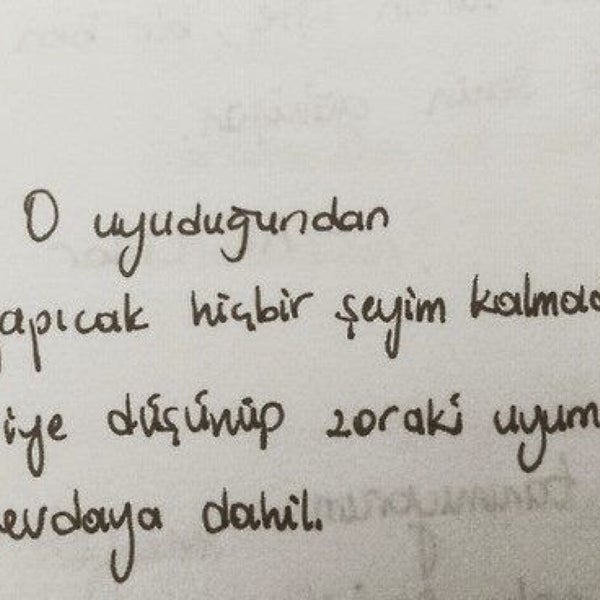 O uyuduğundan
apıcak hiçbir şeyim kalmad
iye düşünüp zoraki uyum
evdaya dahil.